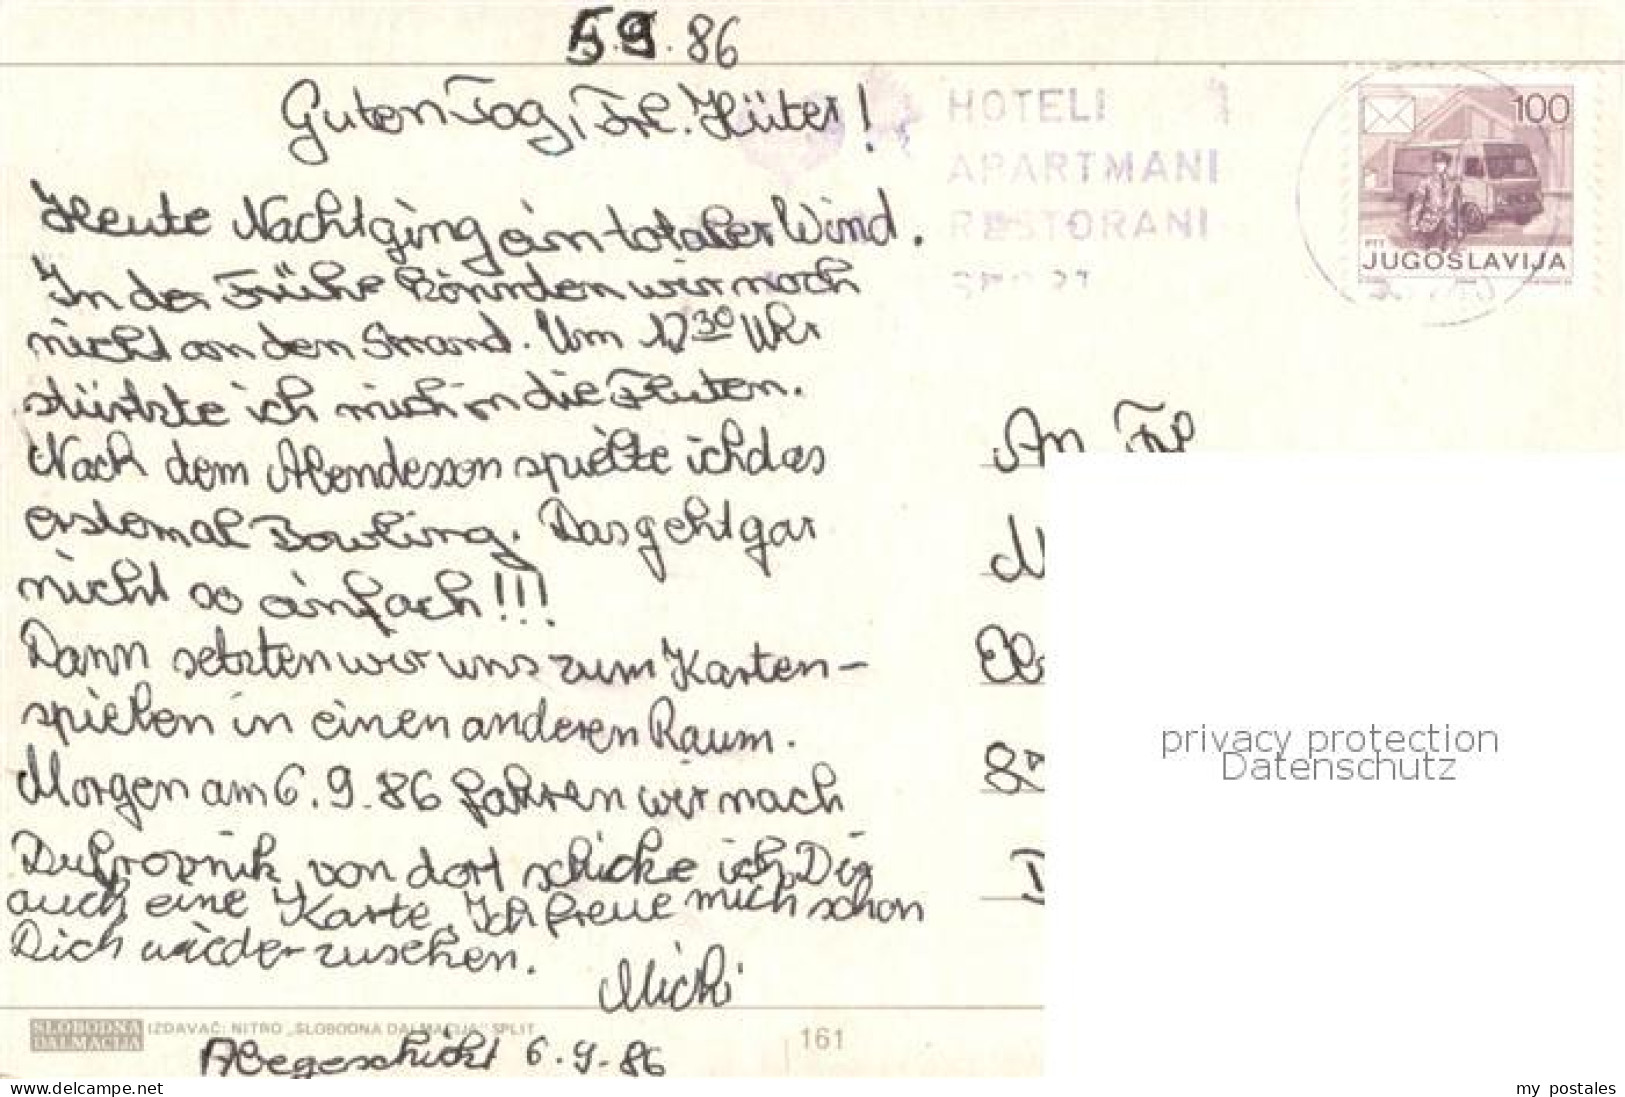 5.9.86
Guten Tag, Frl. Hüter!
HOTELI
APARTMANI
RESTORANI
100
PTT
JUGOSLAVIJA
Heute Nacht ging ein totaler Wind.
In der Frühe könnden wir noch
nicht an den Strand. Um 17 30 Uhr
stürtzte ich mich in die Fluten.
Nach dem Abendessen spielte ich das
erstemal Bowling. Das geht gar
nicht so einfach!!!
Dann setzten wir uns zum Karten-
spielen in einen anderen Raum.
Morgen am 6.9.86 fahren wir nach
Dubrovnik von dort schicke ich Dir
auch eine Karte. Ich freue mich schon
Dich wieder zusehen.
Micki
An Frl
privacy protection
Datenschutz
SLOBODNA
DALMACIJA
IZDAVAČ: NITRO „SLOBODNA DALMACIJA" SPLIT
161
Abgeschickt 6.9.86
www.delcampe.net
my_postales